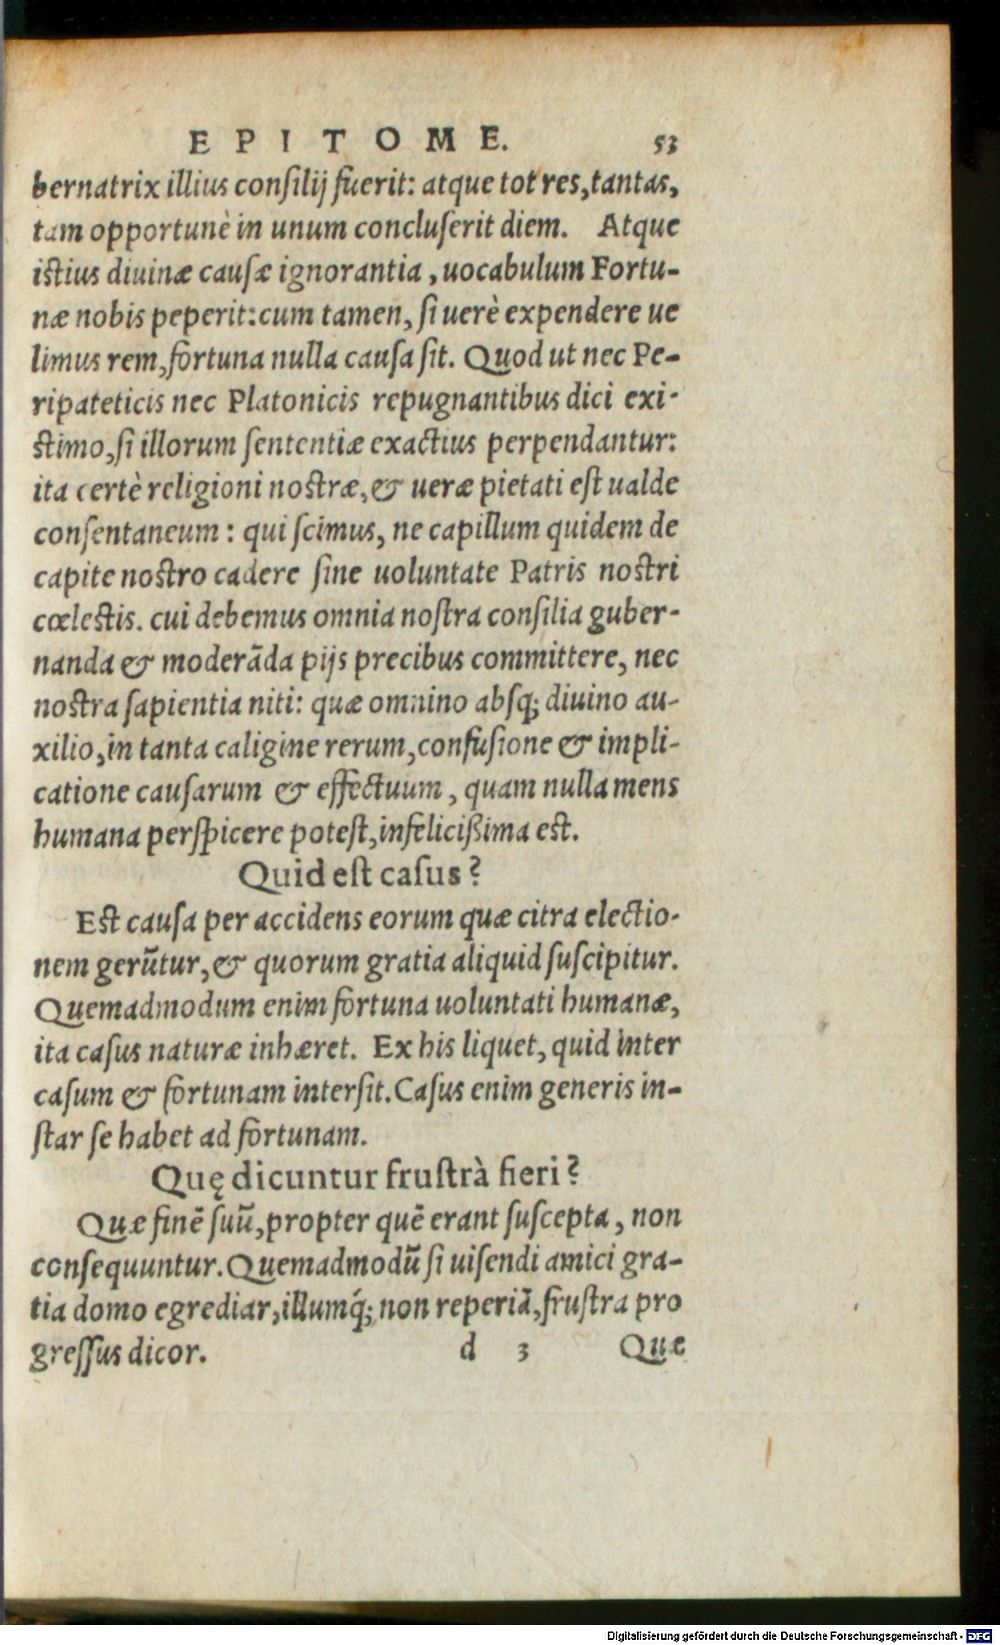 EPITOME. 53
bernatrix illius consilij fuerit: atque tot res, tantas,
tam opportunè in unum concluserit diem. Atque
istius diuinæ causæ ignorantia, uocabulum Fortu-
næ nobis peperit: cum tamen, si uerè expendere ue
limus rem, fortuna nulla causa sit. Quod ut nec Pe-
ripateticis nec Platonicis repugnantibus dici exi-
stimo, si illorum sententiæ exactius perpendantur:
ita certè religioni nostræ, & ueræ pietati est ualde
consentaneum: qui scimus, ne capillum quidem de
capite nostro cadere sine uoluntate Patris nostri
cœlestis. cui debemus omnia nostra consilia guber-
nanda & moderãda pijs precibus committere, nec
nostra sapientia niti: quæ omnino absq; diuino au-
xilio, in tanta caligine rerum, confusione & impli-
catione causarum & effectuum, quam nulla mens
humana perspicere potest, infelicißima est.
Quid est casus?
Est causa per accidens eorum quæ citra electio-
nem gerũtur, & quorum gratia aliquid suscipitur.
Quemadmodum enim fortuna uoluntati humanæ,
ita casus naturæ inhæret. Ex his liquet, quid inter
casum & fortunam intersit. Casus enim generis in-
star se habet ad fortunam.
Quę dicuntur frustrà fieri?
Quæ finẽ suũ, propter quẽ erant suscepta, non
consequuntur. Quemadmodũ si uisendi amici gra-
tia domo egrediar, illumq́; non reperiã, frustra pro
gressus dicor. d 3 Quæ
Digitalisierung gefördert durch die Deutsche Forschungsgemeinschaft - DFG